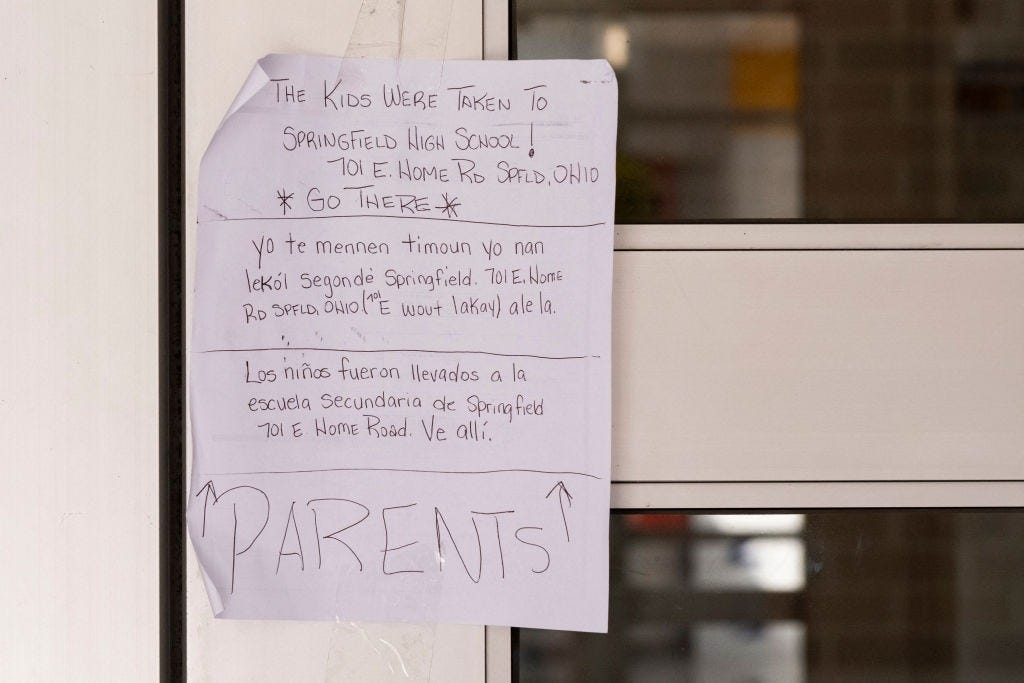 THE KIDS WERE TAKEN TO
SPRINGFIELD HIGH SCHOOL!
701 E. HOME RD SPFLD, OHIO
* GO THERE *
yo te mennen timoun yo nan
lekól segondè Springfield. 701 E. HOME
RD SPFLD, OHIO (701 E wout lakay) ale la.
Los niños fueron llevados a la
escuela secundaria de Springfield
701 E. Home Road. Ve allí.
↑ PARENTS ↑